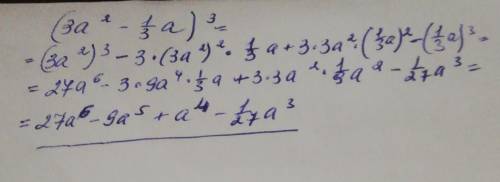 (3a² - 1/3 a)³ =
= (3a²)³ - 3 · (3a²)² · 1/3 a + 3 · 3a² · (1/3 a)² - (1/3 a)³ =
= 27a⁶ - 3 · 9a⁴ · 1/3 a + 3 · 3a² · 1/9 a² - 1/27 a³ =
= 27a⁶ - 9a⁵ + a⁴ - 1/27 a³